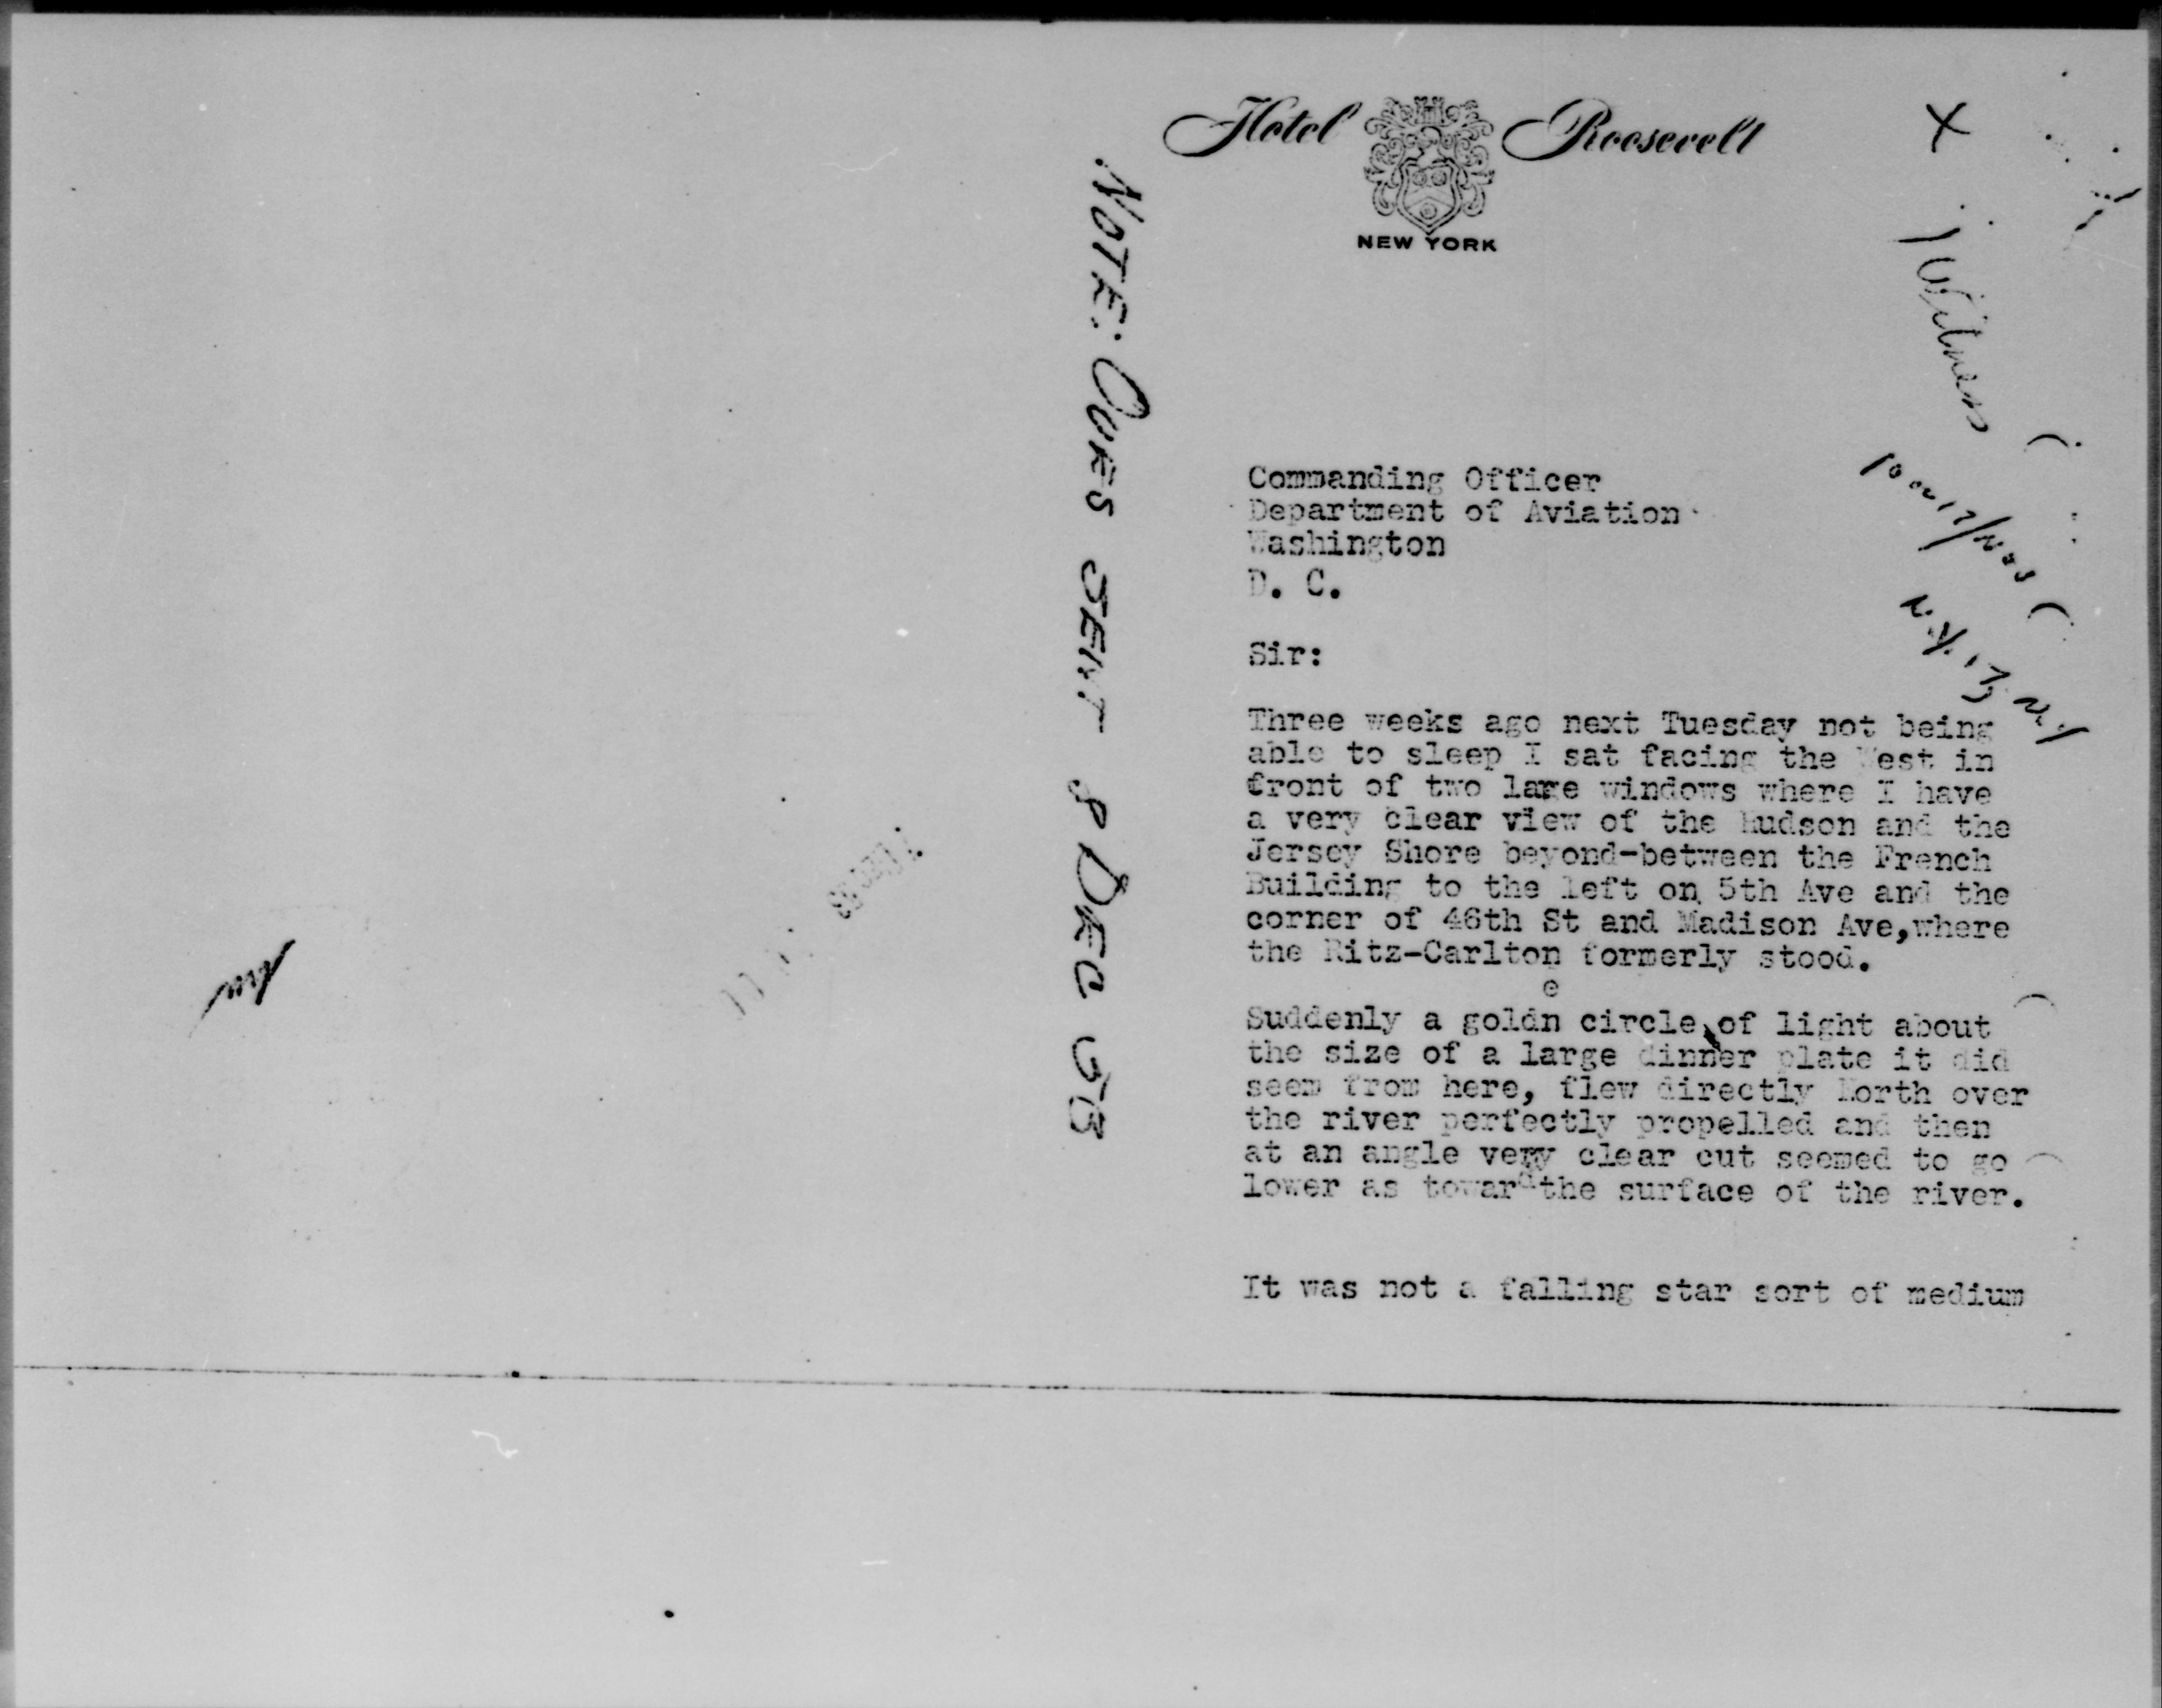 Hotel Roosevelt
NEW YORK
X
1 Witness
N.Y., N.Y
NOTE: QUES SENT 8 DEC 53
Commanding Officer
Department of Aviation
Washington
D. C.
Sir:
Three weeks ago next Tuesday not being
able to sleep I sat facing the West in
front of two lare windows where I have
a very clear view of the Hudson and the
Jersey Shore beyond-between the French
Building to the left on 5th Ave and the
corner of 46th St and Madison Ave,where
the Ritz-Carlton formerly stood.
e
Suddenly a goldn circle of light about
the size of a large dinner plate it did
seem from here, flew directly North over
the river perfectly propelled and then
at an angle very clear cut seemed to go
lower as toward the surface of the river.
It was not a falling star sort of medium